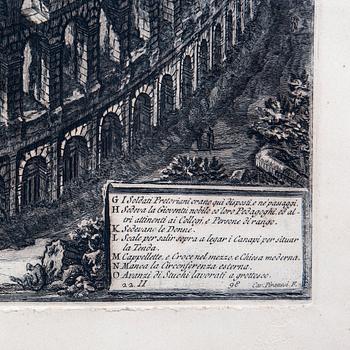 G I Soldati Pretoriani erano qui disposti, e ne' paßaggi.
H. Sedeva la Gioventù nobile co' loro Pedagoghi, ed al-
tri attinenti ai Collegj, e Persone di rango.
K. Sedevano le Donne.
L. Scale per salir sopra a legar i Canapi per situar
la Tenda.
M. Cappellette, e Croce nel mezzo, e Chiesa moderna.
N. Manca la Circonferenza esterna.
O Avanzi di Stuchi lavorati a grottesco.
22. 98 Cav. Piranesi F.